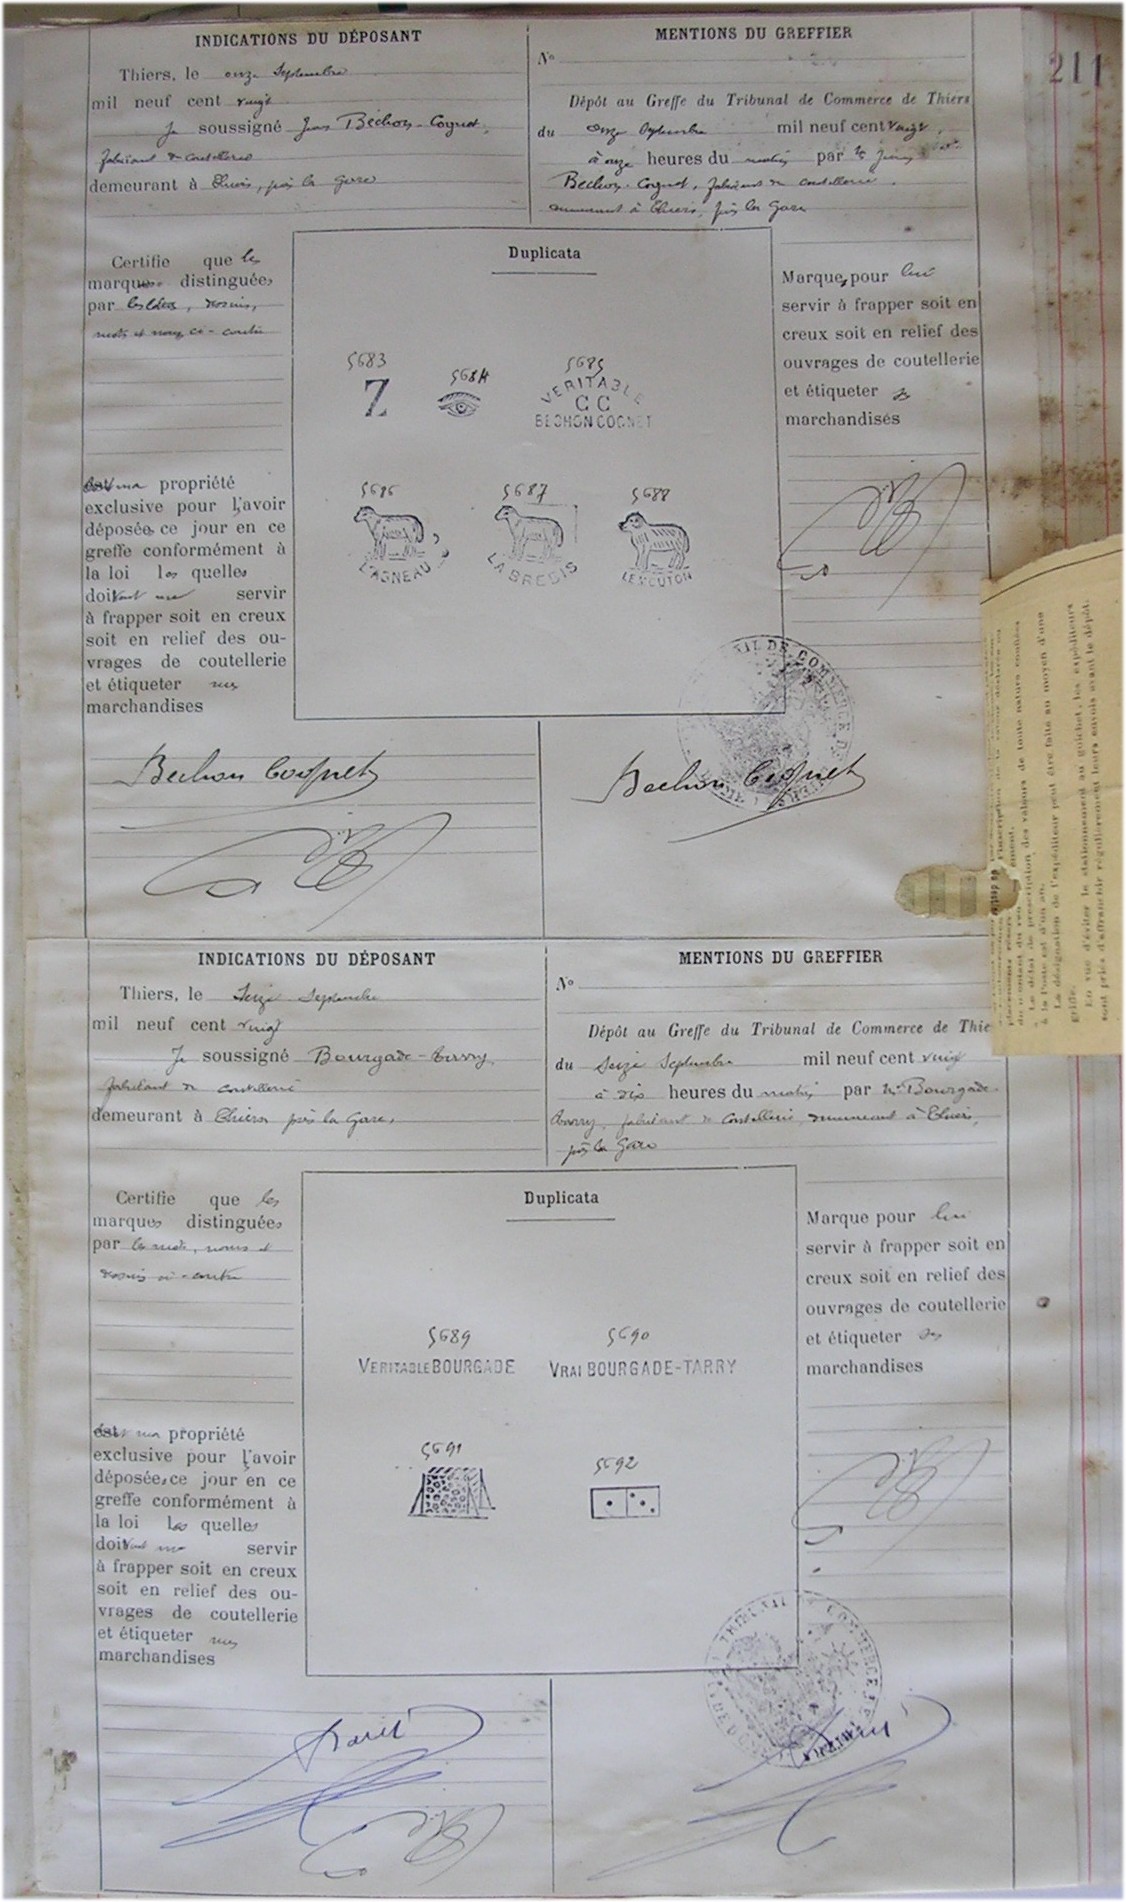 211
INDICATIONS DU DÉPOSANT
Thiers, le onze Septembre
mil neuf cent vingt
Je soussigné Jean Béchon-Cognet,
fabricant de coutellerie
demeurant à Thiers, près la Gare
Certifie que les
marques distinguées
par
mots et noms ci-contre
propriété
exclusive pour l'avoir
déposées ce jour en ce
greffe conformément à
la loi les quelles
doivent me servir
à frapper soit en creux
soit en relief des ou-
vrages de coutellerie
et étiqueter mes
marchandises
Duplicata
5683 5684 5685
Z
VERITABLE
CC
BECHON COGNET
5686 5687 5688
L'AGNEAU LA BREBIS LE MOUTON
MENTIONS DU GREFFIER
No
Dépôt au Greffe du Tribunal de Commerce de Thiers
du onze Septembre mil neuf cent vingt,
à onze heures du matin par Mr Jean
Béchon-Cognet, fabricant de coutellerie,
demeurant à Thiers, près la Gare
Marques pour lui
servir à frapper soit en
creux soit en relief des
ouvrages de coutellerie
et étiqueter ses
marchandises
Bechon Cognet
Bechon Cognet
INDICATIONS DU DÉPOSANT
Thiers, le Seize Septembre
mil neuf cent vingt
Je soussigné Bourgade-Tarry,
fabricant de coutellerie
demeurant à Thiers près la Gare,
Certifie que les
marques distinguées
par les mots, noms et
dessins ci-contre
est ma propriété
exclusive pour l'avoir
déposées ce jour en ce
greffe conformément à
la loi Les quelles
doivent me servir
à frapper soit en creux
soit en relief des ou-
vrages de coutellerie
et étiqueter mes
marchandises
Duplicata
5689 5690
VERITABLE BOURGADE VRAI BOURGADE-TARRY
5691 5692
MENTIONS DU GREFFIER
No
Dépôt au Greffe du Tribunal de Commerce de Thie
du Seize Septembre mil neuf cent vingt
à dix heures du matin par Mr Bourgade-
Tarry, fabricant de coutellerie, demeurant à Thiers,
près la Gare
Marque pour lui
servir à frapper soit en
creux soit en relief des
ouvrages de coutellerie
et étiqueter ses
marchandises
TRIBUNAL DE COMMERCE
Le délai de prescription des valeurs de toute nature confiées
à la Poste est d'un an.
La désignation de l'expéditeur peut être faite au moyen d'une
griffe.
En vue d'éviter le stationnement au guichet, les expéditeurs
sont priés d'affranchir régulièrement leurs envois avant le dépôt.